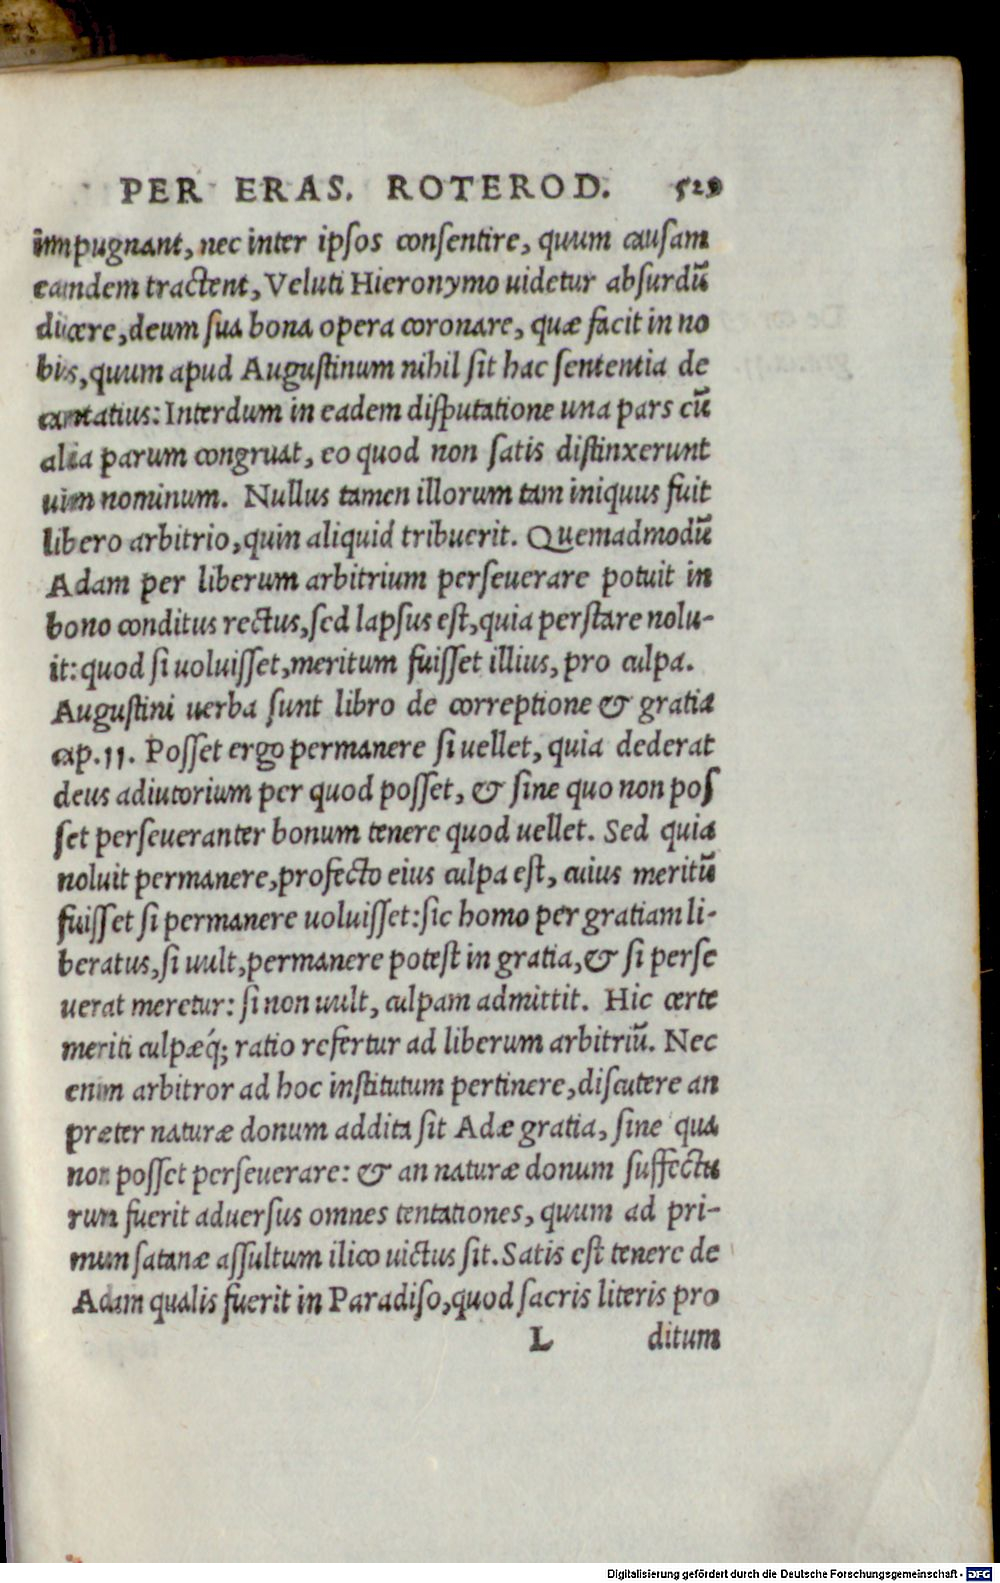 PER ERAS. ROTEROD. 529
impugnant, nec inter ipsos consentire, quum causam
eamdem tractent, Veluti Hieronymo uidetur absurdū
dicere, deum sua bona opera coronare, quæ facit in no
bis, quum apud Augustinum nihil sit hac sententia de
cantatius: Interdum in eadem disputatione una pars cū
alia parum congruat, eo quod non satis distinxerunt
uim nominum. Nullus tamen illorum tam iniquus fuit
libero arbitrio, quin aliquid tribuerit. Quemadmodū
Adam per liberum arbitrium perseuerare potuit in
bono conditus rectus, sed lapsus est, quia perstare nolu-
it: quod si uoluisset, meritum fuisset illius, pro culpa.
Augustini uerba sunt libro de correptione & gratia
cap. 11. Posset ergo permanere si uellet, quia dederat
deus adiutorium per quod posset, & sine quo non pos
set perseueranter bonum tenere quod uellet. Sed quia
noluit permanere, profecto eius culpa est, cuius meritū
fuisset si permanere uoluisset: sic homo per gratiam li-
beratus, si uult, permanere potest in gratia, & si perse
uerat meretur: si non uult, culpam admittit. Hic certe
meriti culpæq́; ratio refertur ad liberum arbitriū. Nec
enim arbitror ad hoc institutum pertinere, discutere an
præter naturæ donum addita sit Adæ gratia, sine qua
non posset perseuerare: & an naturæ donum suffectu
rum fuerit aduersus omnes tentationes, quum ad pri-
mum satanæ assultum ilico uictus sit. Satis est tenere de
Adam qualis fuerit in Paradiso, quod sacris literis pro
L ditum
Digitalisierung gefördert durch die Deutsche Forschungsgemeinschaft - DFG